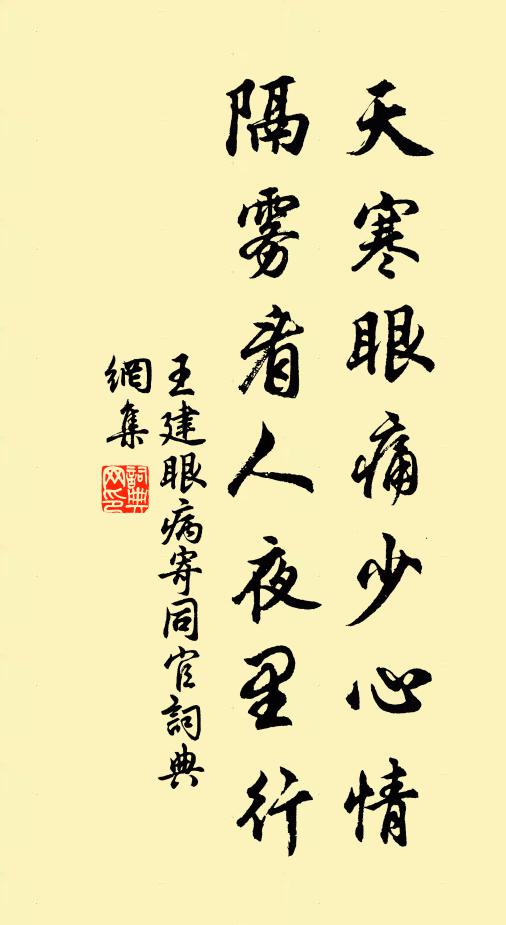 天寒眼痛少心情
隔雾看人夜里行
王建眼病寄同官詞典
網集
詞典网印